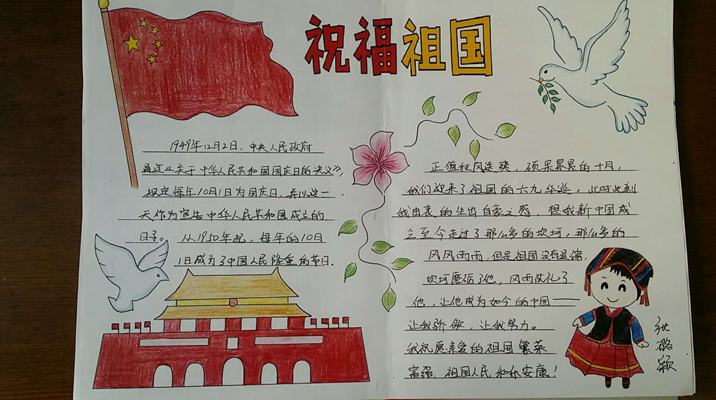 祝福祖国
1949年12月2日，中央人民政府
通过《关于中华人民共和国国庆日的决议》，
规定每年10月1日为国庆日，并以这一
天作为宣告中华人民共和国成立的
日子。从1950年起，每年的10月
1日成为了中国人民隆重的节日.
正值秋风送爽，硕果累累的十月，
我们迎来了祖国的六九华诞，此时此刻
我由衷的生出自豪之感，想我新中国成
立至今走过了那么多的坎坷，那么多的
风风雨雨，但是祖国没有退缩，
坎坷磨砺了他，风雨洗礼了
他，让他成为如今的中国——
让我骄傲，让我努力。
我祝愿亲爱的祖国繁荣
富强，祖国人民和和安康！